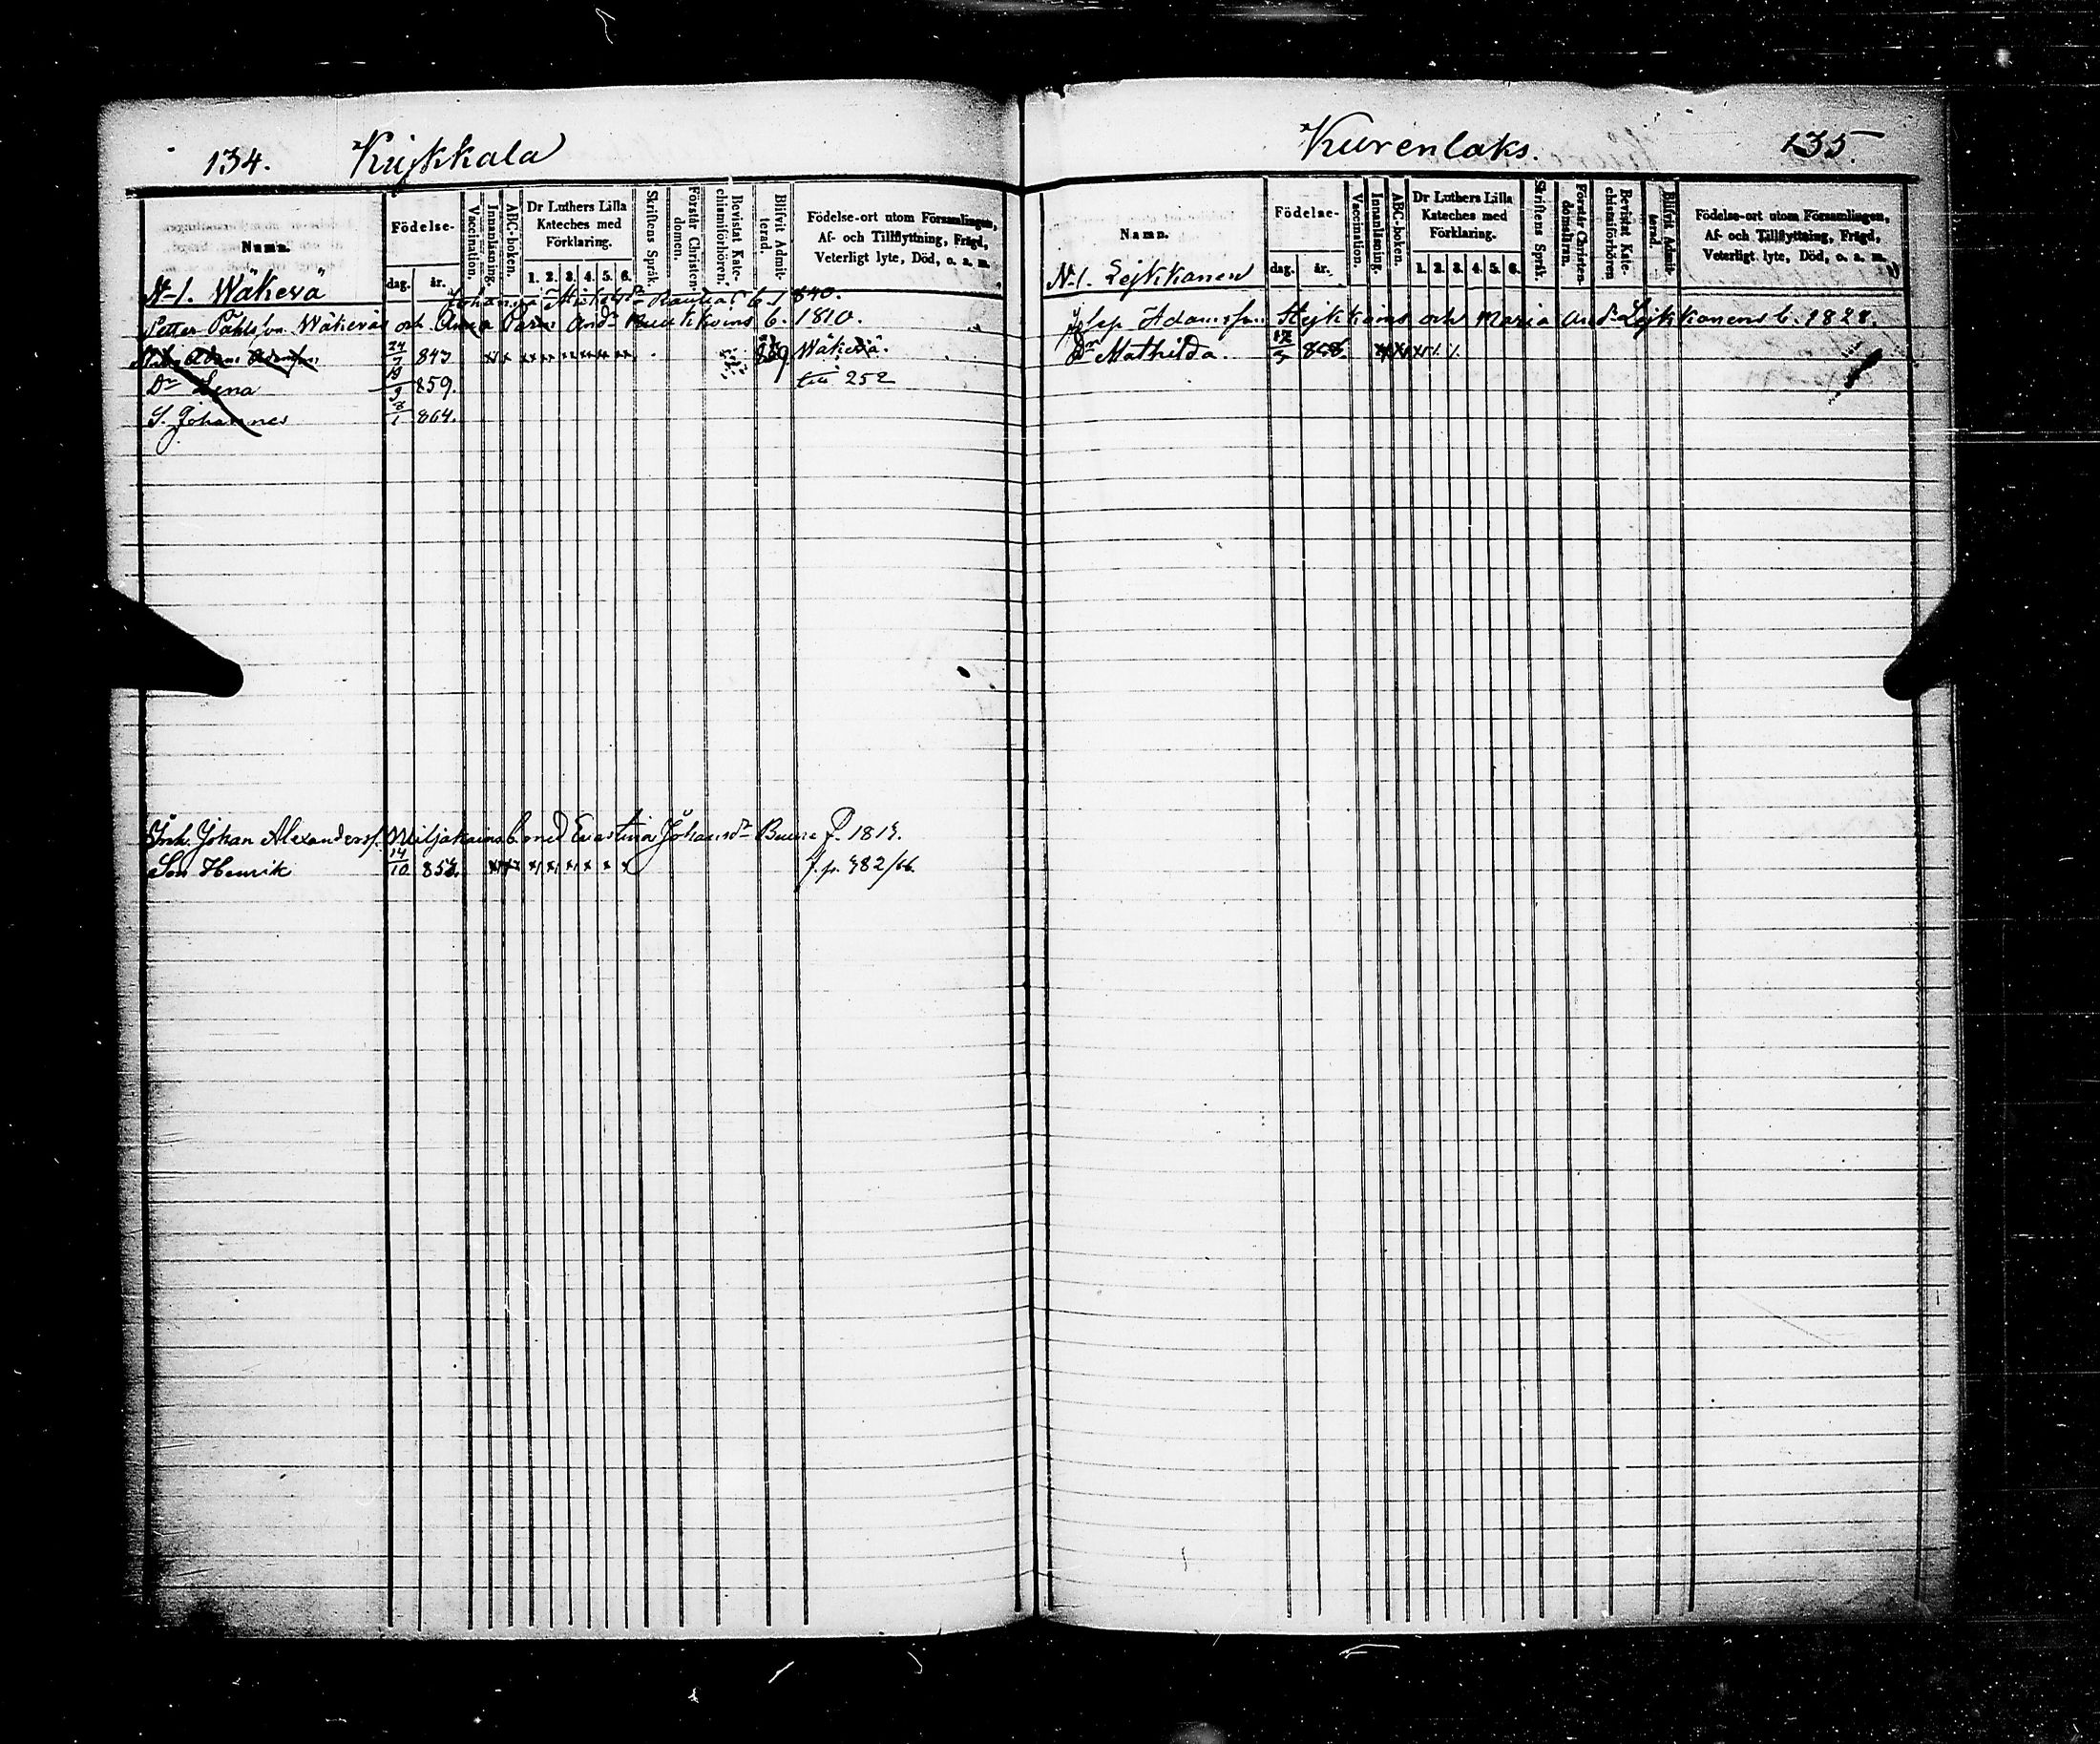 134. Kujkkala
Namn.
Födelse-
dag. år.
Vaccination.
Innanläsning.
ABC-boken.
Dr Luthers Lilla Kateches med Förklaring.
1. 2. 3. 4. 5. 6.
Skriftens Språk.
Förstår Christen-domen.
Bevistat Kate-chismiförhören.
Blifvit Admit-terad.
Födelse-ort utom Församlingen,
Af- och Tillflyttning, Frägd,
Veterligt lyte, Död, o. a. m.
N-1. Wäkevä
Johanna 840.
Petter Påhlsson Wäkeväs och Anna And: b. 1810.
24/7 843 869 Wäkevä.
Dr Lena 18/9 859. till 252
S. Johannes 1 864.
Inh. Johan Alexanders. Miljakains b. med Evastina Johansdr Buure f. 1813.
Son Henrik 14/10 852. f. p. 382/66.
Kurenlaks. 135.
Namn.
Födelse-
dag. år.
Vaccination.
Innanläsning.
ABC-boken.
Dr Luthers Lilla Kateches med Förklaring.
1. 2. 3. 4. 5. 6.
Skriftens Språk.
Förstår Christen-domsläran.
Bevistat Kate-chismiförhören.
Blifvit Admit-terad.
Födelse-ort utom Församlingen,
Af- och Tillflyttning, Frägd,
Veterligt lyte, Död, o. a. m.
N-1. Lejkkanen
Josep Adamsson Hejkkoins och Maria And: Lejkkanens b. 1828.
Dr Mathilda. 858.